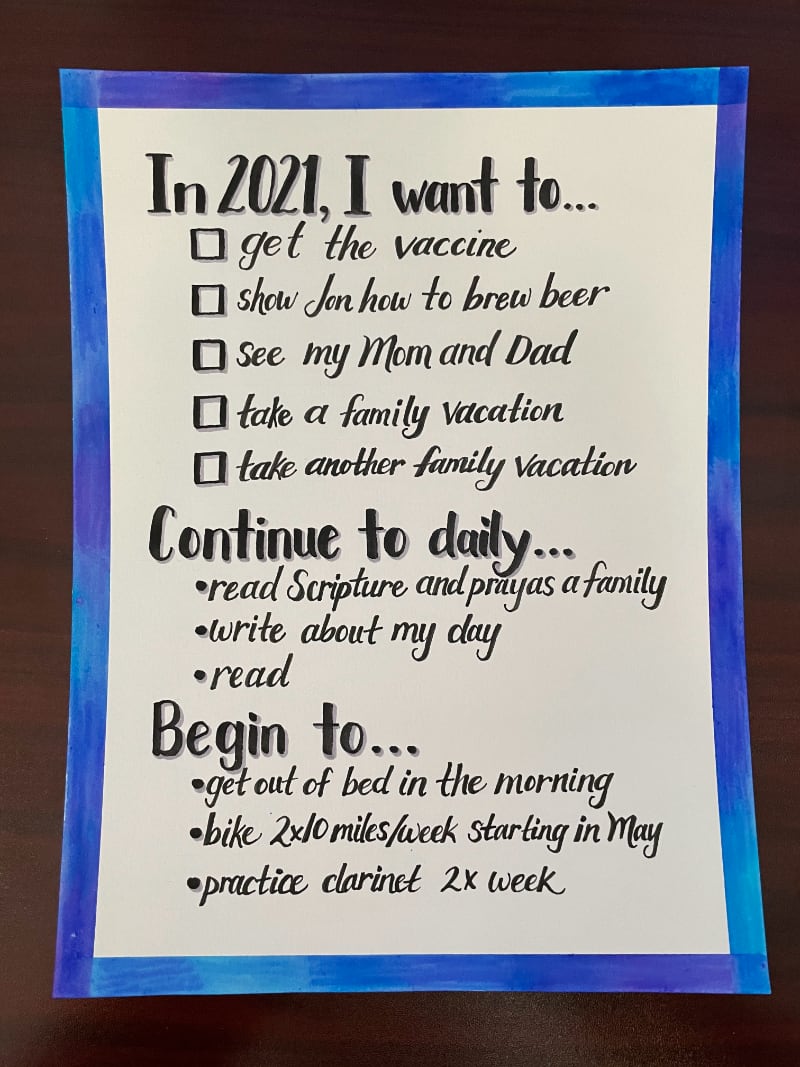 In 2021, I want to...
get the vaccine
show Jon how to brew beer
see my Mom and Dad
take a family vacation
take another family vacation
Continue to daily...
•read Scripture and pray as a family
•write about my day
•read
Begin to...
•get out of bed in the morning
•bike 2x10 miles/week starting in May
•practice clarinet 2x week